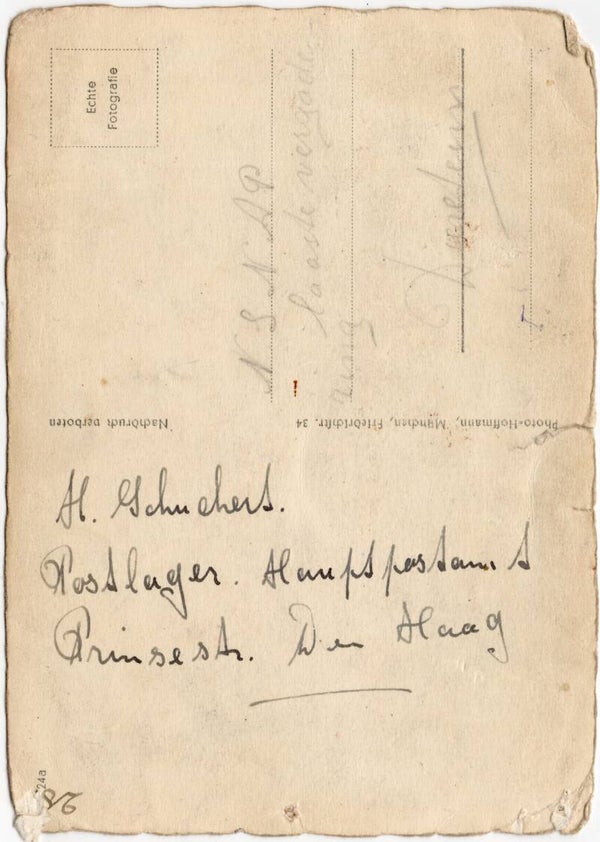 Echte
Fotografie
N S N A P
laaste vergade
ring
Nachdruck verboten
Photo-Hoffmann, München, Friedrichstr. 34
H. Schuchert.
Postlager. Hauptpostamt
Prinsestr. Den Haag
24a
28